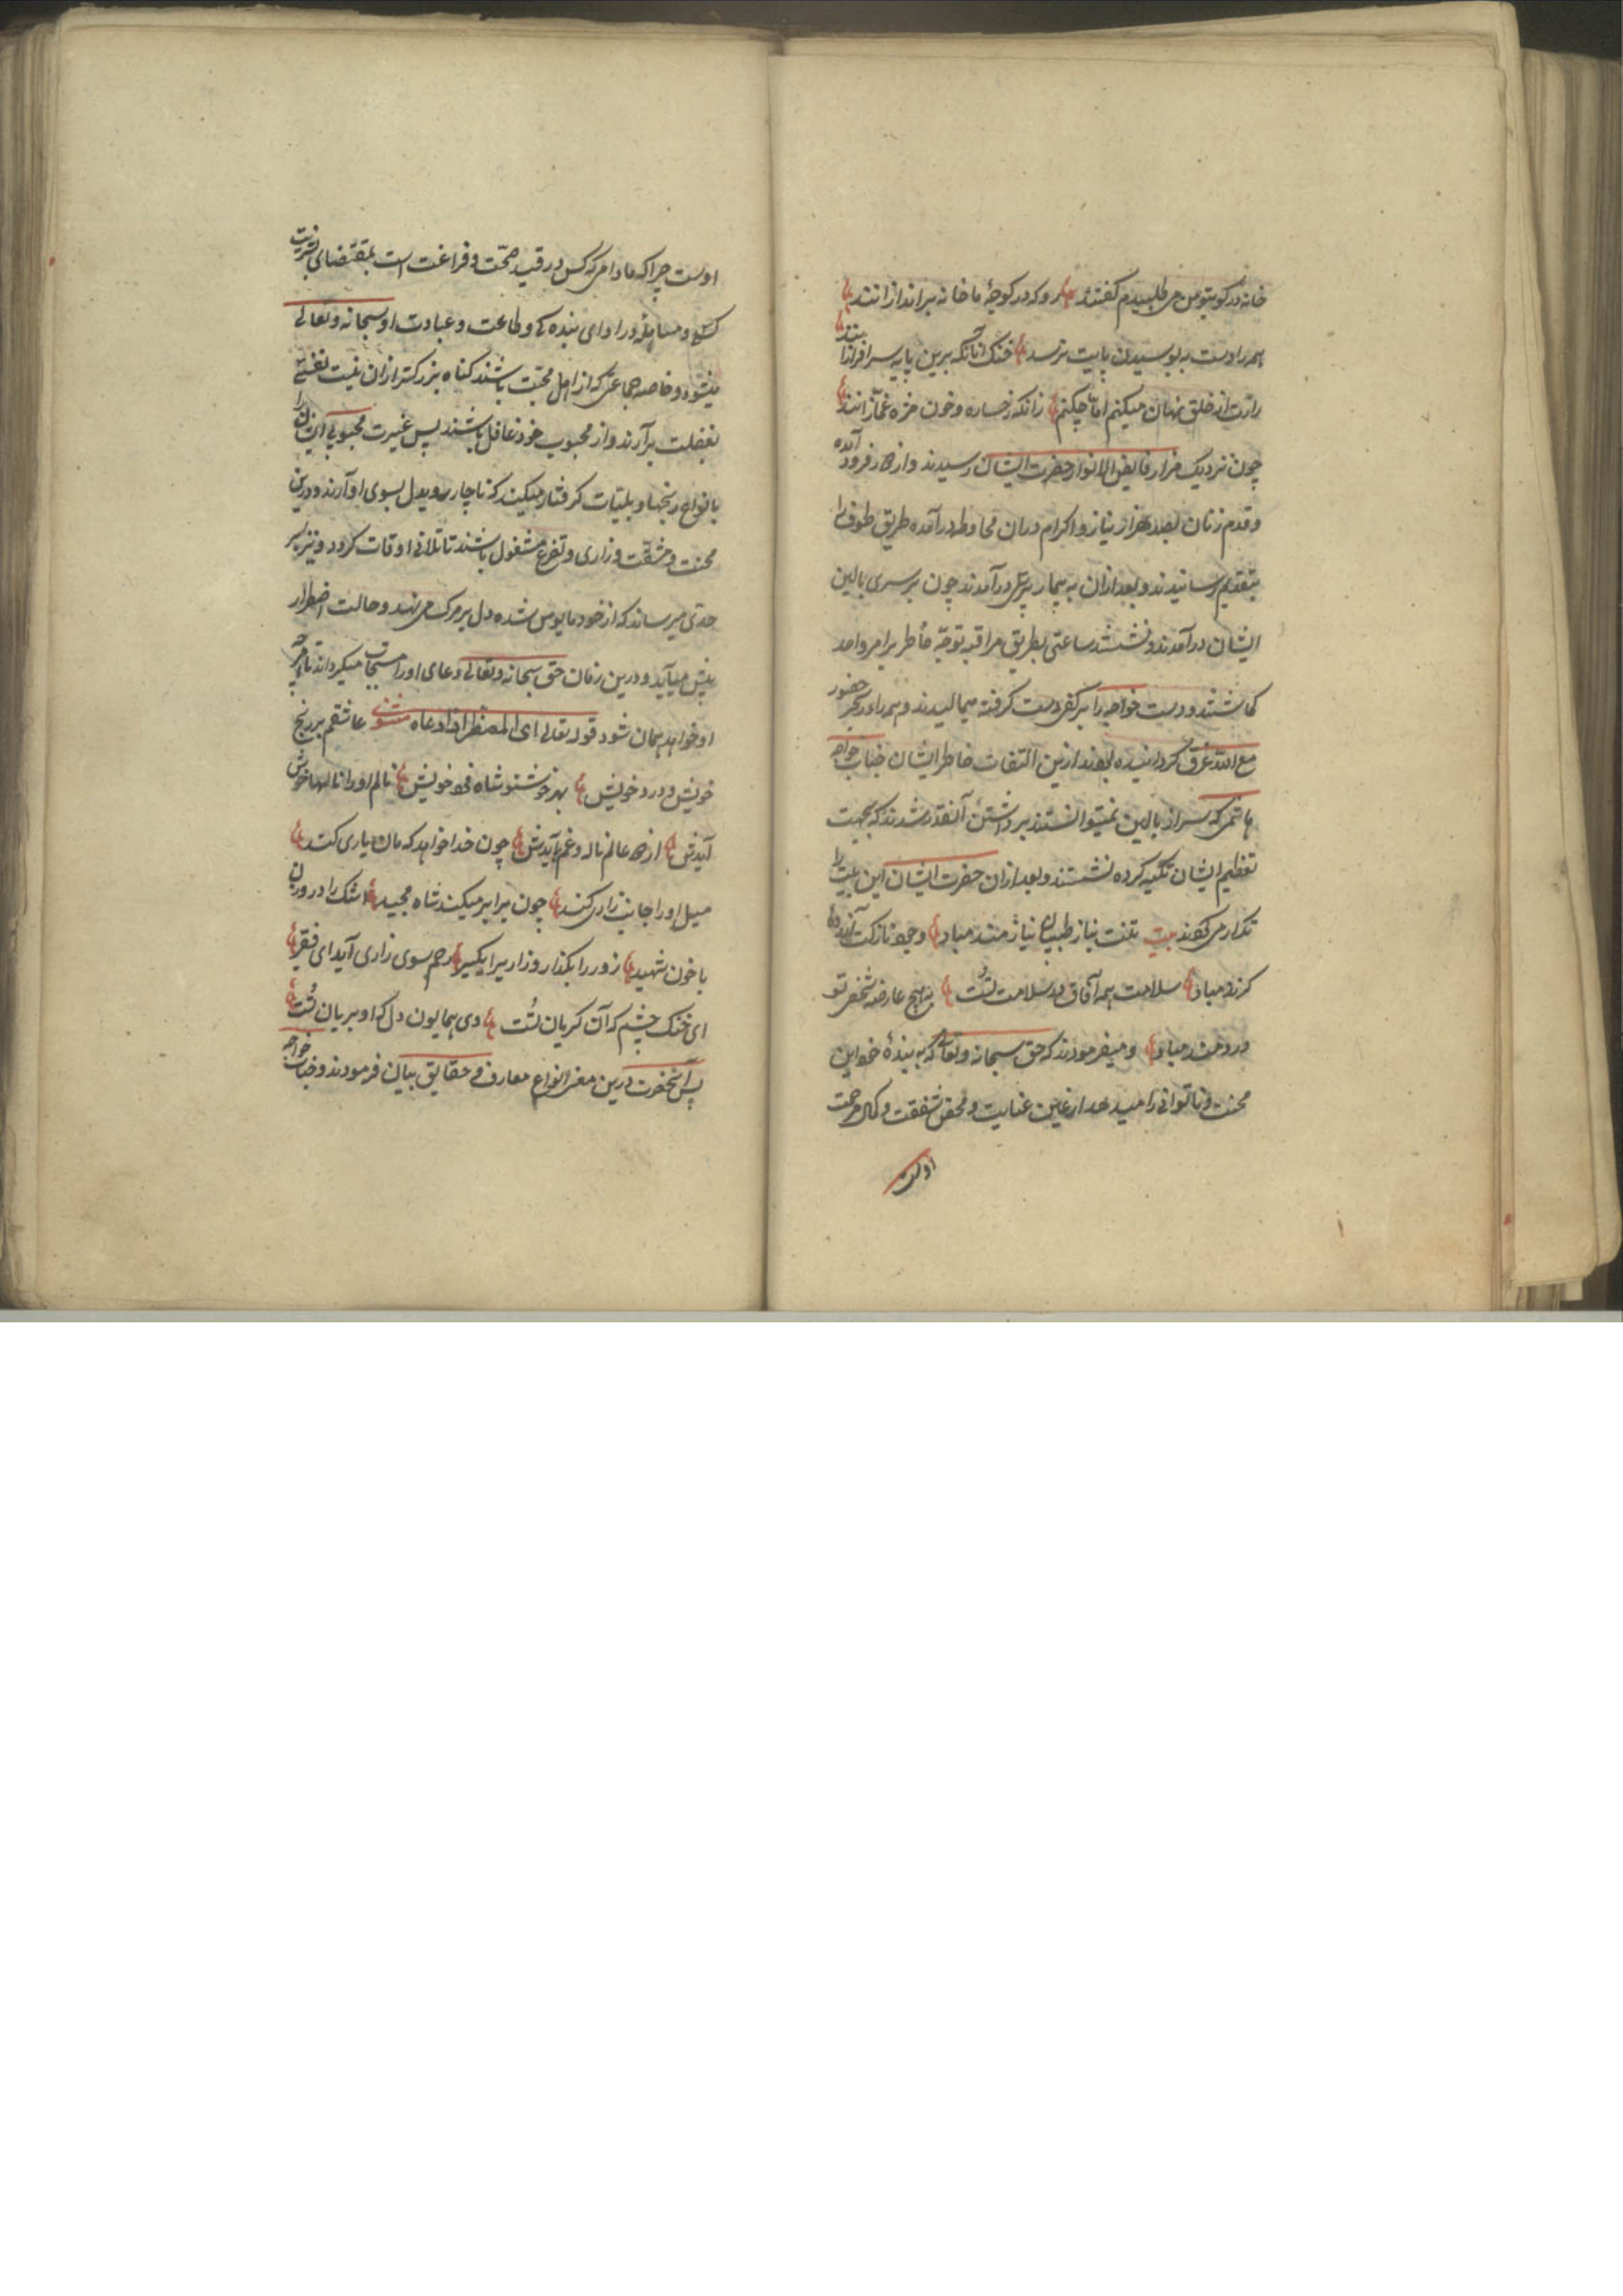 خانه در کویتو من می طلبیدم گفتند رو که در کوچهٔ ما خانه براندازانند
همه را دست ببوسیدن پایت نرسد خنک آنانکه برین پایه سرافرازانند
رازت از خلق نهان میکنم اما چکنم زانکه رخساره و خون مژه غمازانند
چون نزدیک مزار فایض الانوار حضرت ایشان رسیدند و از فرود آمده
و قدم زنان بصد هزار نیاز و اکرام دران محاوطه درآمده طریق طوف را
بتقدیم رسانیدند و بعد ازان به بیمار پرسی درآمدند چون بر سری بالین
ایشان درآمدند و نشستند ساعتی بطریق مراقبه توجه خاطر برامر واحد
کماشتند و دست خواجه را بر کف دست گرفته میمالیدند و همه را در بحر حضور
مع الله غرق گردانیده بودند ازین التفات خاطر ایشان جناب خواجه
هاشم که سر از بالین نمیتوانستند برداشتن آنقدر شدند که بجهت
تعظیم ایشان تکیه کرده نشستند و بعد ازان حضرت ایشان این بیت را
تکرار می کردند بیت تنت بناز طبیبان نیازمند مباد وجود نازکت آزرده
گزند مباد سلامت همه آفاق در سلامت تست به هیچ عارضه شخص تو
دردمند مباد و میفرمودند که حق سبحانه و تعالی که به بندهٔ خود این
محنت و ناتوانی را میدهد از عین عنایت و محض شفقت و کمال مرحمت
اوست
اوست چرا که مادامی که کس در قید صحت و فراغت است بمقتضای بشریت
کسل و مساهله در ادای بنده کی و طاعت و عبادت او سبحانه و تعالی
میشود و خاصه جماعتی که از اهل محبت باشند کناه بزرکتر ازان نیست نفسی
بغفلت برآرند و از محبوب خود غافل باشند پس غیرت محبوبی ایشان را
بانواع رنجها و بلیات کرفتار میکند که ناچار روی دل بسوی او آرند و درین
محنت و مشقت و زاری و تضرع مشغول باشند تا تلافی اوقات کردد و نیز بسر
حدی میرساند که از خود مایوس شده دل بر مرک می نهد و حالت اضطرار
پیش میآید و درین زمان حق سبحانه و تعالی دعای او را مستجاب میکرداند تا هرچه
او خواهد همان شود قوله تعالی ای المضطر اذا دعاه مثنوی عاشقم بر رنج
خویش و درد خویش بهر خوشنودی شاه فرد خویش نالم او را نالها خوش
آیدش از دو عالم ناله و غم بایدش چون خدا خواهد که مان یاری کند
میل او را جانب زاری کند چون برابر میکند شاه مجید اشک را در وزن
با خون شهید زور را بکذار و زاری را بکیر رحم سوی زاری آید ای فقیر
ای خنک چشم که آن کریان تست وی همایون دل که او بریان تست
پس آنحضرت درین معنی انواع معارف و حقایق بیان فرمودند و جناب خواجه